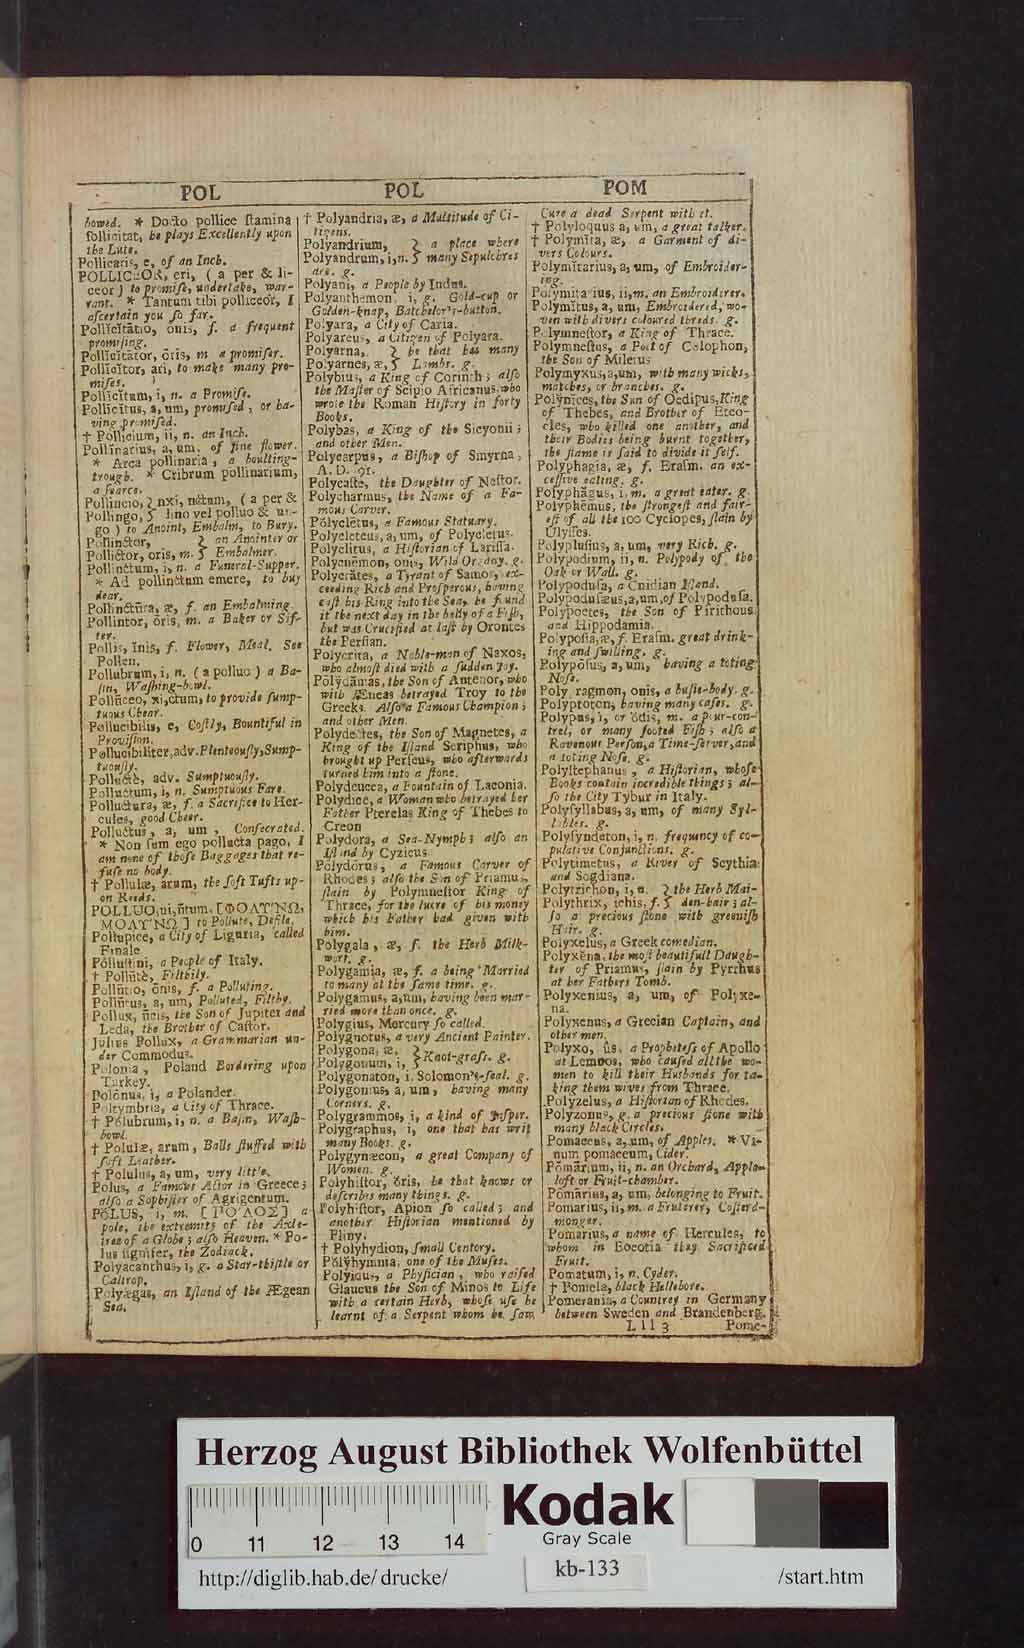 POL
POL
POM
bowed. * Docto pollice stamina
sollicitat, he plays Excellently upon
the Lute.
Pollicaris, e, of an Inch.
POLLICEOR, eri, ( a per & li-
ceor ) to promise, undertake, war-
rant. * Tantum tibi polliceor, I
ascertain you so far.
Pollĭcĭtātio, ōnis, f. a frequent
promising.
Pollĭcĭtātor, ōris, m a promiser.
Pollĭcĭtor, ari, to make many pro-
mises.
Pollĭcĭtum, i, n. a Promise.
Pollĭcĭtus, a, um, promised, or ha-
ving promised.
† Pollicium, ii, n. an Inch.
Pollinarius, a, um, of fine flower.
* Arca pollinaria, a boulting-
trough. * Cribrum pollinarium,
a searce.
Pollincio, } nxi, nctum, ( a per &
Pollingo, } lino vel polluo & un-
go ) to Anoint, Embalm, to Bury.
Pollinctor, } an Anointer or
Pollictor, oris, m. } Embalmer.
Pollinctum, i, n. a Funeral-Supper.
* Ad pollinctum emere, to buy
dear.
Pollinctūra, æ, f. an Embalming.
Pollintor, ōris, m. a Baker or Sif-
ter.
Pollis, ĭnis, f. Flower, Meal. See
Pollen.
Pollubrum, i, n. ( a polluo ) a Ba-
sin, Washing-bowl.
Pollūceo, xi, ctum, to provide sump-
tuous Chear.
Pollucibilis, e, Costly, Bountiful in
Provision.
Pollucibiliter, adv. Plenteously, Sump-
tuously.
Polluctè, adv. Sumptuously.
Polluctum, i, n. Sumptuous Fare.
Polluctura, æ, f. a Sacrifice to Her-
cules, good Chear.
Polluctus, a, um, Consecrated.
* Non sum ego pollucta pago, I
am none of those Baggages that re-
fuse no body.
† Pollulæ, arum, the soft Tufts up-
on Reeds.
POLLUO, ui, ūtum, [ΦΟΛΥΝΩ,
ΜΟΛΥΝΩ ] to Pollute, Defile.
Pollupice, a City of Liguria, called
Finale.
Pollustini, a People of Italy.
† Pollūtè, Filthily.
Pollūtio, ōnis, f. a Polluting.
Pollūtus, a, um, Polluted, Filthy.
Pollux, ūcis, the Son of Jupiter and
Leda, the Brother of Castor.
Julius Pollux, a Grammarian un-
der Commodus.
Polonia, Poland Bordering upon
Turkey.
Polōnus, i, a Polander.
Poltymbria, a City of Thrace.
† Pŏlubrum, i, n. a Basin, Wash-
bowl.
† Polulæ, arum, Balls stuffed with
soft Leather.
† Polulus, a, um, very little.
Polus, a Famous Actor in Greece;
also a Sophister of Agrigentum.
PŎLUS, i, m. [ ΠΟΛΟΣ] a
pole, the extremity of the Axle-
tree of a Globe; also Heaven. * Po-
lus signifer, the Zodiack.
Polyacanthus, i, g. a Star-thistle or
Caltrop.
Polyægas, an Island of the Ægean
Sea.
† Polyandria, æ, a Multitude of Ci-
tizens.
Polyandrium, } a place where
Polyandrum, i, n. } many Sepulchres
are. g.
Polyani, a People by Indus.
Polyanthemon, i, g. Gold-cup or
Golden-knap, Batchelor's-button.
Polyara, a City of Caria.
Polyareus, a Citizen of Polyara.
Polyarna, } he that has many
Polyarnes, æ, } Lambs. g.
Polybius, a King of Corinth; also
the Master of Scipio Africanus, who
wrote the Roman History in forty
Books.
Polybas, a King of the Sicyonii;
and other Men.
Polycarpus, a Bishop of Smyrna,
A. D. 91.
Polycaste, the Daughter of Nestor.
Polycharmus, the Name of a Fa-
mous Carver.
Pŏlyclētus, a Famous Statuary.
Polycleteus, a, um, of Polycletus.
Polyclitus, a Historian of Larissa.
Polycnēmon, onis, Wild Organy. g.
Polycrătes, a Tyrant of Samos, ex-
ceeding Rich and Prosperous, having
cast his Ring into the Sea, he found
it the next day in the belly of a Fish,
but was Crucified at last by Orontes
the Persian.
Polycrita, a Noble-man of Naxos,
who almost died with a sudden Joy.
Pŏlydămas, the Son of Antenor, who
with Æneas betrayed Troy to the
Greeks. Also a Famous Champion;
and other Men.
Polydectes, the Son of Magnetes, a
King of the Island Seriphus, who
brought up Perseus, who afterwards
turned him into a stone.
Polydeucea, a Fountain of Laconia.
Polydice, a Woman who betrayed her
Father Pterelas King of Thebes to
Creon
Polydora, a Sea-Nymph; also an
Island by Cyzicus.
Pŏlydōrus, a Famous Carver of
Rhodes; also the Son of Priamus,
slain by Polymnestor King of
Thrace, for the lucre of his money
which his Father had given with
him.
Polygala, æ, f. the Herb Milk-
wort. g.
Polygamia, æ, f. a being Married
to many at the same time. g.
Polygamus, a, um, having been mar-
ried more than once. g.
Polygius, Mercury so called.
Polygnotus, a very Ancient Painter.
Polygona, æ, } Knot-grass. g.
Polygonum, i, }
Polygonaton, i, Solomon's-seal. g.
Polygonius, a, um, having many
Corners. g.
Polygrammos, i, a kind of Jasper.
Polygraphus, i, one that has writ
many Books. g.
Polygynæcon, a great Company of
Women. g.
Polyhistor, ŏris, he that knows or
describes many things. g.
Polyhistor, Apion so called; and
another Historian mentioned by
Pliny.
† Polyhydion, small Centory.
Pŏlyhymnia, one of the Muses.
Polyidus, a Physician, who raised
Glaucus the Son of Minos to Life
with a certain Herb, whose use he
learnt of a Serpent whom he saw
Cure a dead Serpent with it.
† Polyloquus a, um, a great talker.
† Polymĭta, æ, a Garment of di-
vers Colours.
Polymĭtarius, a, um, of Embroider-
ing.
Polymitarius, ii, m. an Embroiderer.
Polymĭtus, a, um, Embroidered, wo-
ven with divers coloured threds. g.
Polymnestor, a King of Thrace.
Polymnestus, a Poet of Colophon,
the Son of Miletus
Polymyxus, a, um, with many wicks,
matches, or branches. g.
Polynīces, the Son of Oedipus, King
of Thebes, and Brother of Eteo-
cles, who killed one another, and
their Bodies being burnt together,
the flame is said to divide it self.
Polyphagia, æ, f. Erasm. an ex-
cessive eating. g.
Polyphăgus, i, m. a great eater. g.
Polyphēmus, the strongest and fair-
est of all the 100 Cyclopes, slain by
Ulysses.
Polyplusius, a, um, very Rich. g.
Polypodium, ii, n. Polypody of the
Oak or Wall. g.
Polypodusa, a Cnidian Island.
Polypodusæus, a, um, of Polypodusa.
Polypoetes, the Son of Pirithous
and Hippodamia.
Polyposia, æ, f. Erasm. great drink-
ing and swilling. g.
Polypōsus, a, um, having a toting
Nose.
Polypragmon, onis, a busie-body. g.
Polyptoton, having many cases. g.
Polypus, i, or ŏdis, m. a pour-con-
trel, or many footed Fish; also a
Ravenous Person, a Time-server, and
a toting Nose. g.
Polystephanus, a Historian, whose
Books contain incredible things; al-
so the City Tybur in Italy.
Polysyllabus, a, um, of many Syl-
lables. g.
Polysyndeton, i, n. frequency of co-
pulative Conjunctions. g.
Polytimetus, a River of Scythia
and Sogdiana.
Polytrichon, i, n. } the Herb Mai-
Polythrix, ichis, f. } den-hair; al-
so a precious stone with greenish
Hair. g.
Polyxelus, a Greek comedian.
Polyxĕna, the most beautifull Daugh-
ter of Priamus, slain by Pyrrhus
at her Fathers Tomb.
Polyxenius, a, um, of Polyxe-
na.
Polyxenus, a Grecian Captain, and
other men.
Polyxo, ûs, a Prophetess of Apollo
at Lemnos, who caused all the wo-
men to kill their Husbands for ta-
king them wives from Thrace.
Polyzelus, a Historian of Rhodes.
Polyzonus, g. a precious stone with
many black Circles.
Pomaceus, a, um, of Apples. * Vi-
num pomaceum, Cider.
Pōmārium, ii, n. an Orchard, Apple-
loft or Fruit-chamber.
Pomārius, a, um, belonging to Fruit.
Pomarius, ii, m. a Fruterer, Costerd-
monger.
Pomarius, a name of Hercules, to
whom in Boeotia they Sacrificed
Fruit.
Pomatum, i, n. Cyder.
† Pomela, black Hellebore.
Pomerania, a Countrey in Germany
between Sweden and Brandenberg.
L l l 3 Pome-
Herzog August Bibliothek Wolfenbüttel
Kodak
Gray Scale
0 11 12 13 14
kb-133
http://diglib.hab.de/drucke/
/start.htm